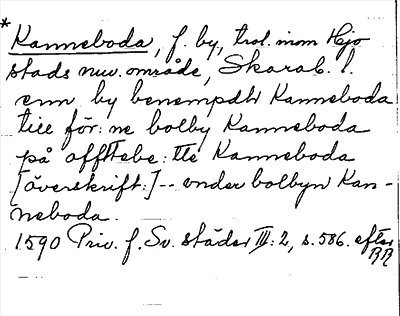 * Kanneboda, f. by, trol. inom Hjo
stads nuv. område, Skarab. l.
enn by benempdh Kanneboda
till för: ne bolby Kanneboda
på afftebe: tte Kanneboda
[överskrift:] -- under bolbyn Kan-
neboda.
1590 Priv. f. Sv. städer III: 2, s. 586. efter
RR